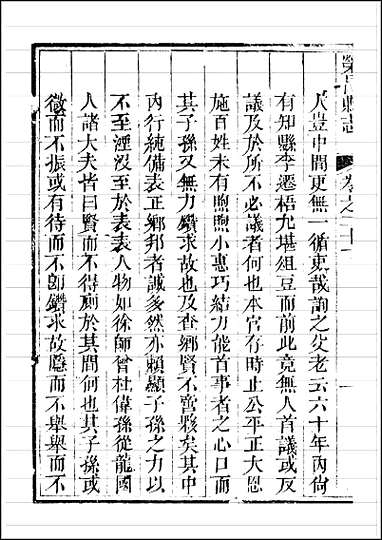 榮昌縣志 卷之二十
人豈中間更無一循吏哉詢之父老云六十年內尚
有知縣李遷梧尤堪俎豆而前此竟無人首議或反
議及於所不必議者何也本官存時止公平正大恩
施百姓未有煦煦小惠巧結力能首事者之心口而
其子孫又無力鑽求故也及查鄉賢不啻夥矣其中
內行純備表正鄉邦者誠多然亦賴顯子孫之力以
不至湮沒至於表表人物如徐師曾杜偉孫從龍國
人諸大夫皆曰賢而不得廁於其間何也其子孫或
微而不振或有待而不卽鑽求故隱而不舉舉而不